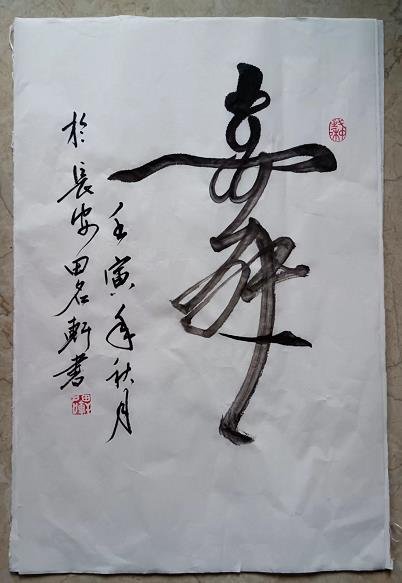 舞
壬寅年秋月
於長安田名軒書